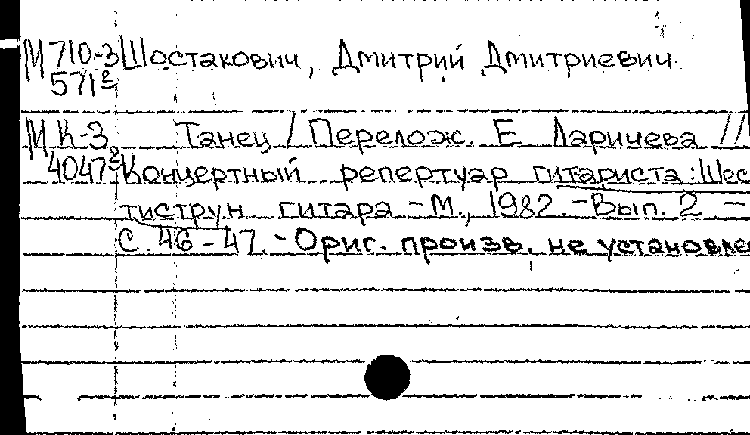 М 710-3 Шостакович, Дмитрий Дмитриевич.
571²
М К-3 Танец / Перелож. Е Ларичева //
4047² Концертный репертуар гитариста: Шес
тиструн гитара - М., 1982. - Вып. 2 -
С. 46-47. - Ориг. произв. не установле